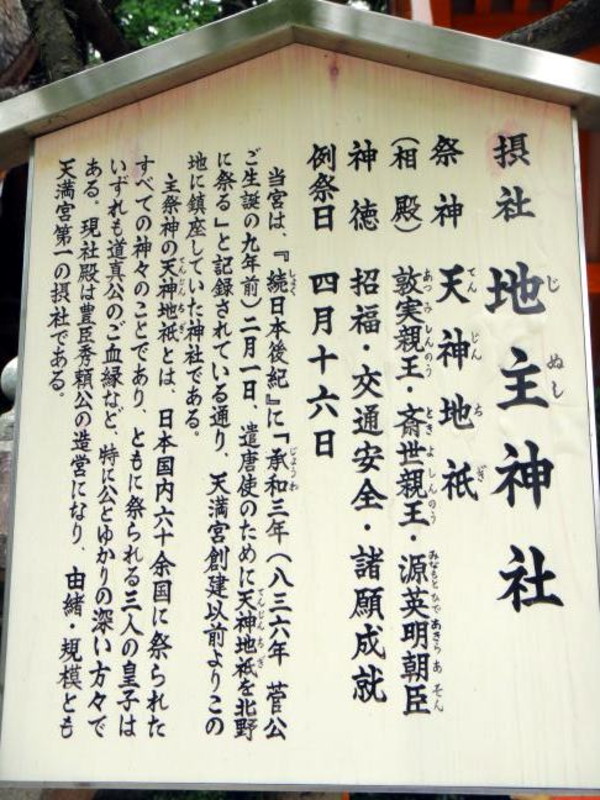 摂社 地主神社
祭神 天神地祇
（相殿） 敦実親王・斎世親王・源英明朝臣
神徳 招福・交通安全・諸願成就
例祭日 四月十六日
当宮は、『続日本後紀』に「承和三年（八三六年 菅公
ご生誕の九年前）二月一日、遣唐使のために天神地祇を北野
に祭る」と記録されている通り、天満宮創建以前よりこの
地に鎮座していた神社である。
主祭神の天神地祇とは、日本国内六十余国に祭られた
すべての神々のことであり、ともに祭られる三人の皇子は
いずれも道真公のご血縁など、特に公とゆかりの深い方々で
ある。現社殿は豊臣秀頼公の造営になり、由緒・規模とも
天満宮第一の摂社である。